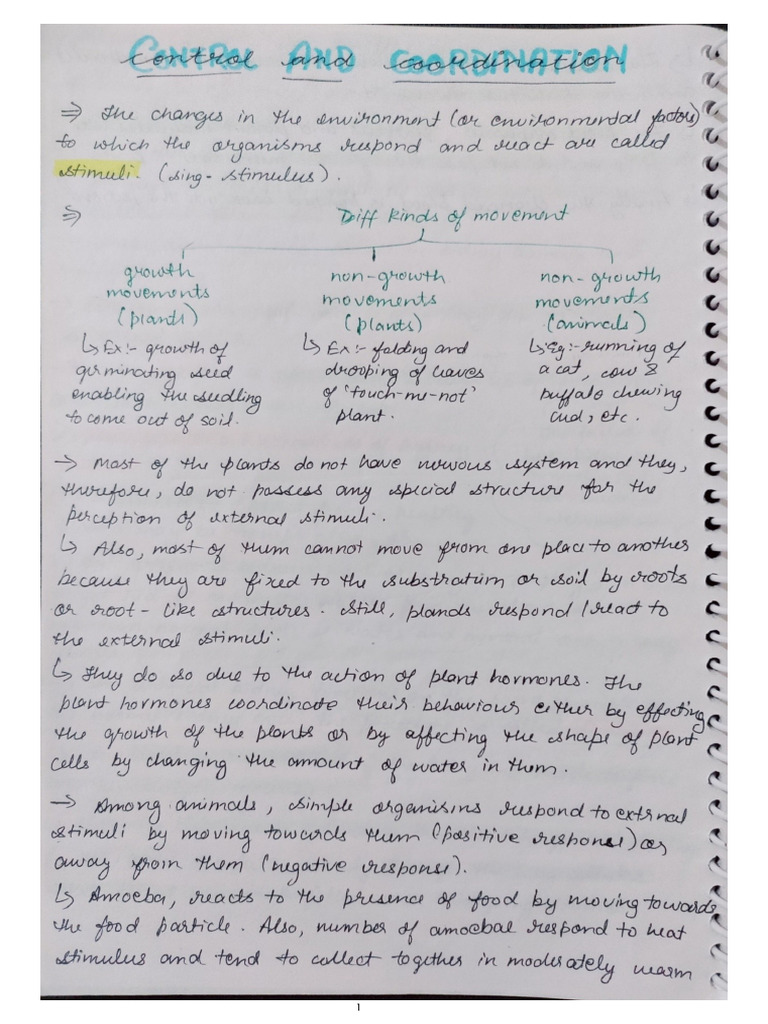 CONTROL AND COORDINATION
⇒ The changes in the environment (or environmental factors)
to which the organisms respond and react are called
stimuli. (sing- stimulus).
⇒ Diff kinds of movement
growth movements (plants)
↳ Ex:- growth of
germinating seed
enabling the seedling
to come out of soil.
non-growth movements (plants)
↳ Ex:- folding and
drooping of leaves
of 'touch-me-not'
plant.
non-growth movements (animals)
↳ Eg:- running of
a cat, cow &
buffalo chewing
cud, etc.
→ Most of the plants do not have nervous system and they,
therefore, do not possess any special structure for the
perception of external stimuli.
↳ Also, most of them cannot move from one place to another
because they are fixed to the substratum or soil by roots
or root-like structures. Still, plands respond/react to
the external stimuli.
↳ They do so due to the action of plant hormones. The
plant hormones coordinate their behaviour either by effecting
the growth of the plants or by affecting the shape of plant
cells by changing the amount of water in them.
→ Among animals, simple organisms respond to external
stimuli by moving towards them (positive response) or
away from them (negative response).
↳ Amoeba, reacts to the presence of food by moving towards
the food particle. Also, number of amoebae respond to heat
stimulus and tend to collect together in moderately warm
1